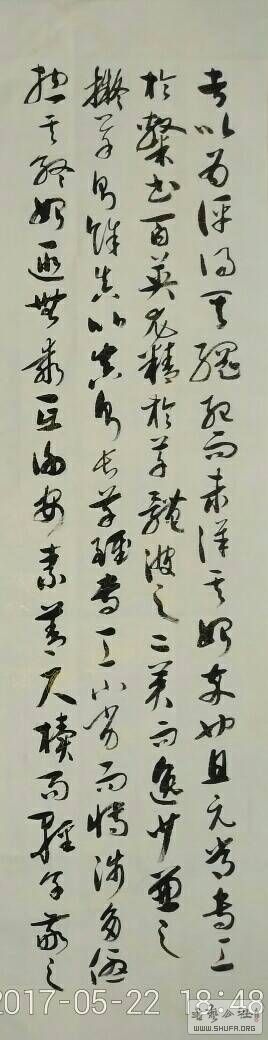 者以為評得其綱紀而未詳其始卒也且元常專工
於隸書伯英尤精於草體彼之二美而逸少兼之
擬草則餘真比真則長草雖專工小劣而博涉多優
揔其終始匪無乖互謝安素善尺牘而輕子敬之
2017-05-22 18:48
WWW.SHUFA.ORG